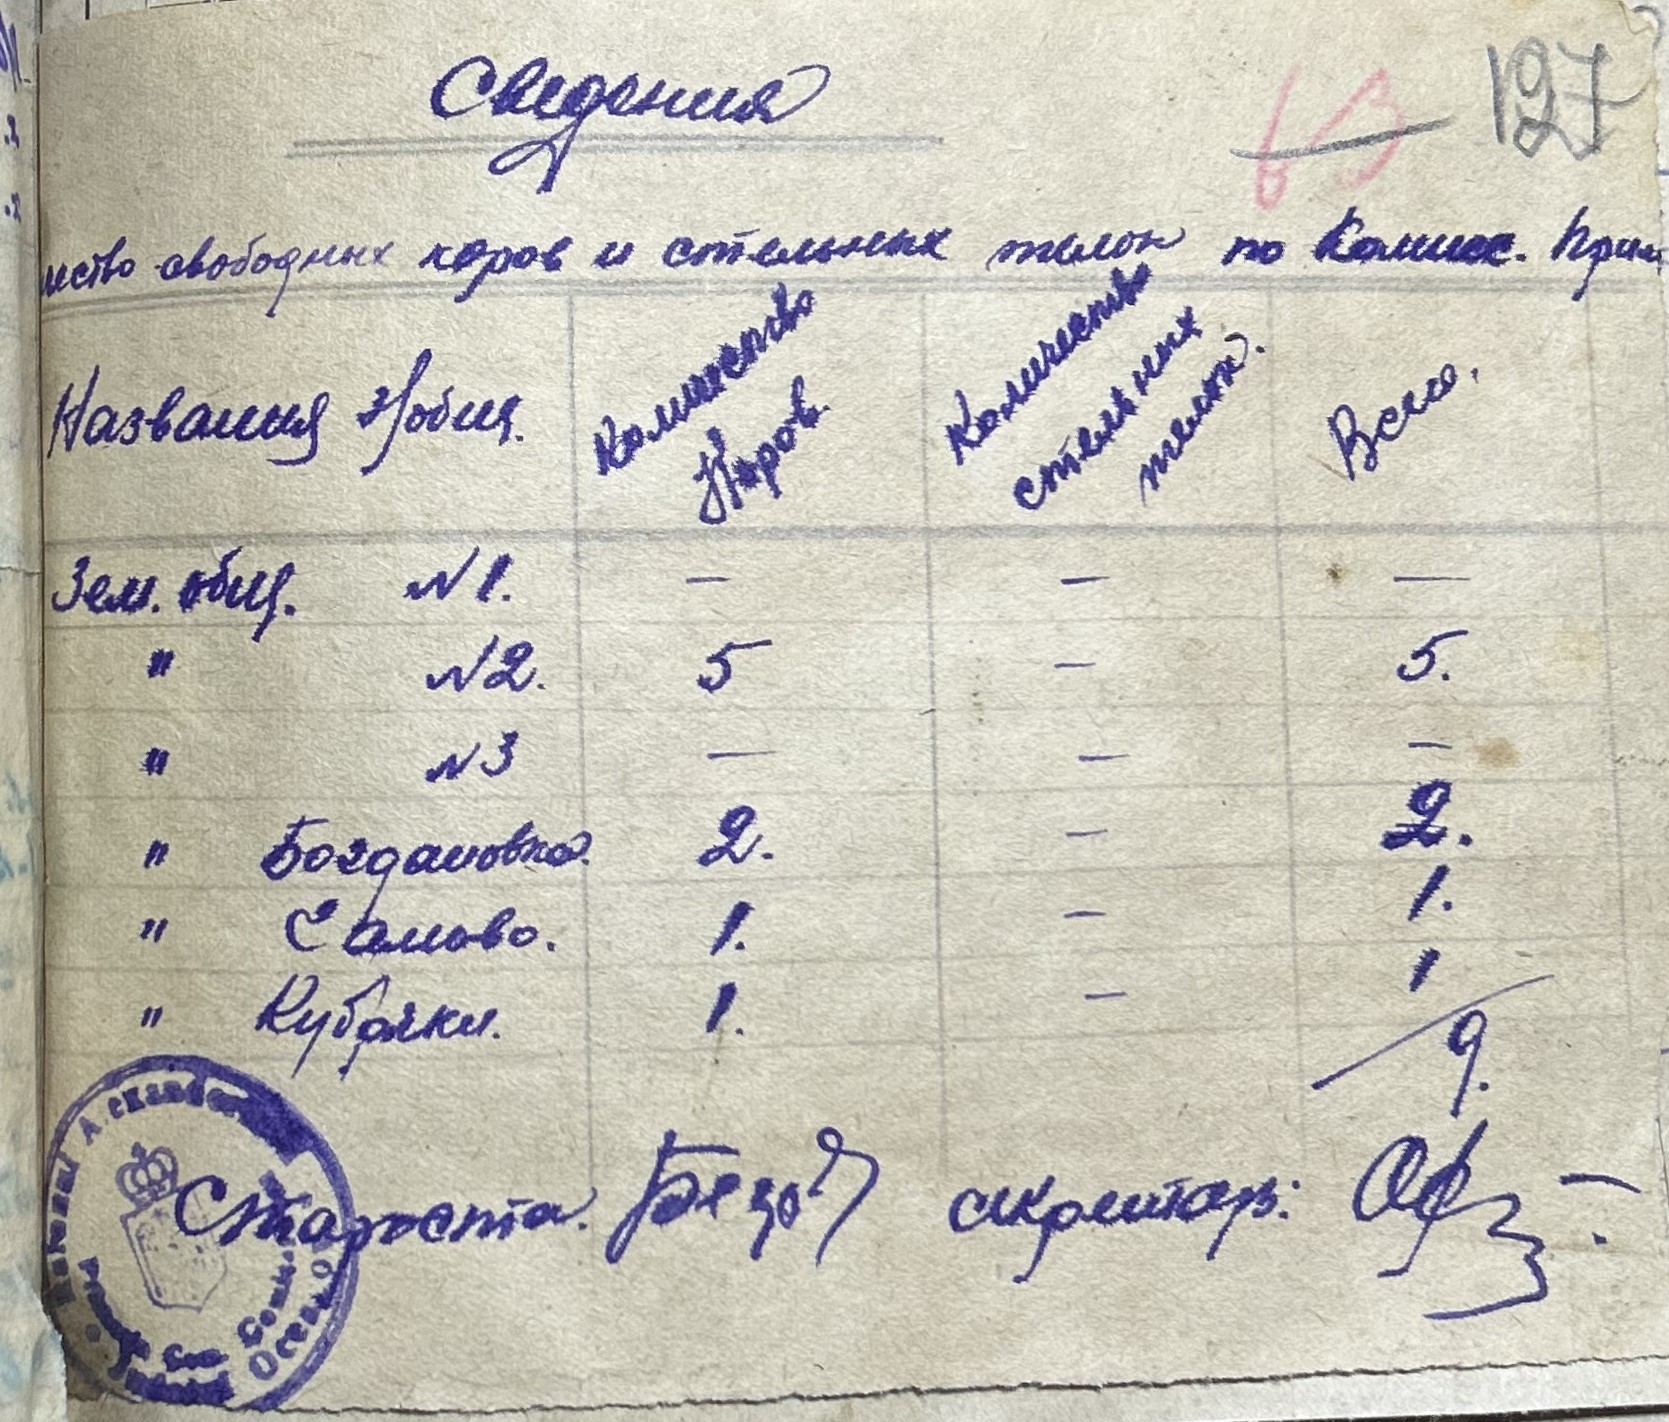 127
Сведения
ество свободных коров и стельных телок по Комисс. Прим
Названия з/общ. Количество Коров. Количество стельных телок. Всего.
Зем. общ. №1. — — —
" №2. 5 — 5.
" №3 — — —
" Богдановка. 2. — 2.
" Самово. 1. — 1.
" Кубряки. 1. — 1
9.
Староста. секретарь: